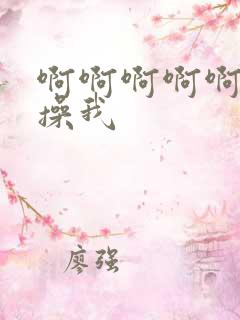 啊啊啊啊啊
操我
廖强